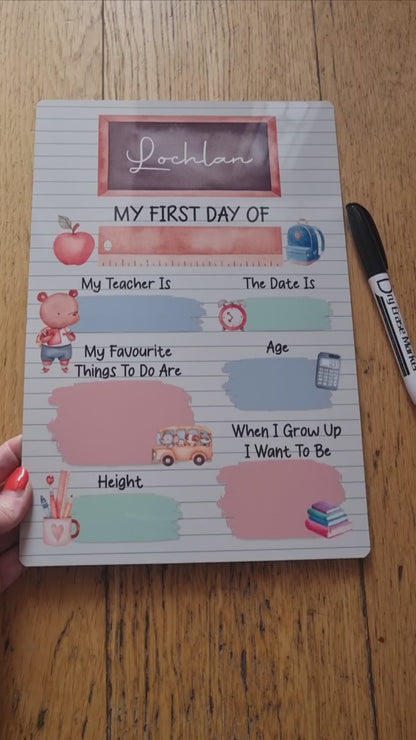 Lochlan
MY FIRST DAY OF
My Teacher Is
The Date Is
My Favourite
Things To Do Are
Age
When I Grow Up
I Want To Be
Height
Dry Erase Marker